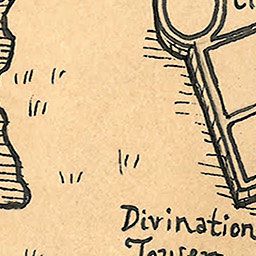 Divination
Tower